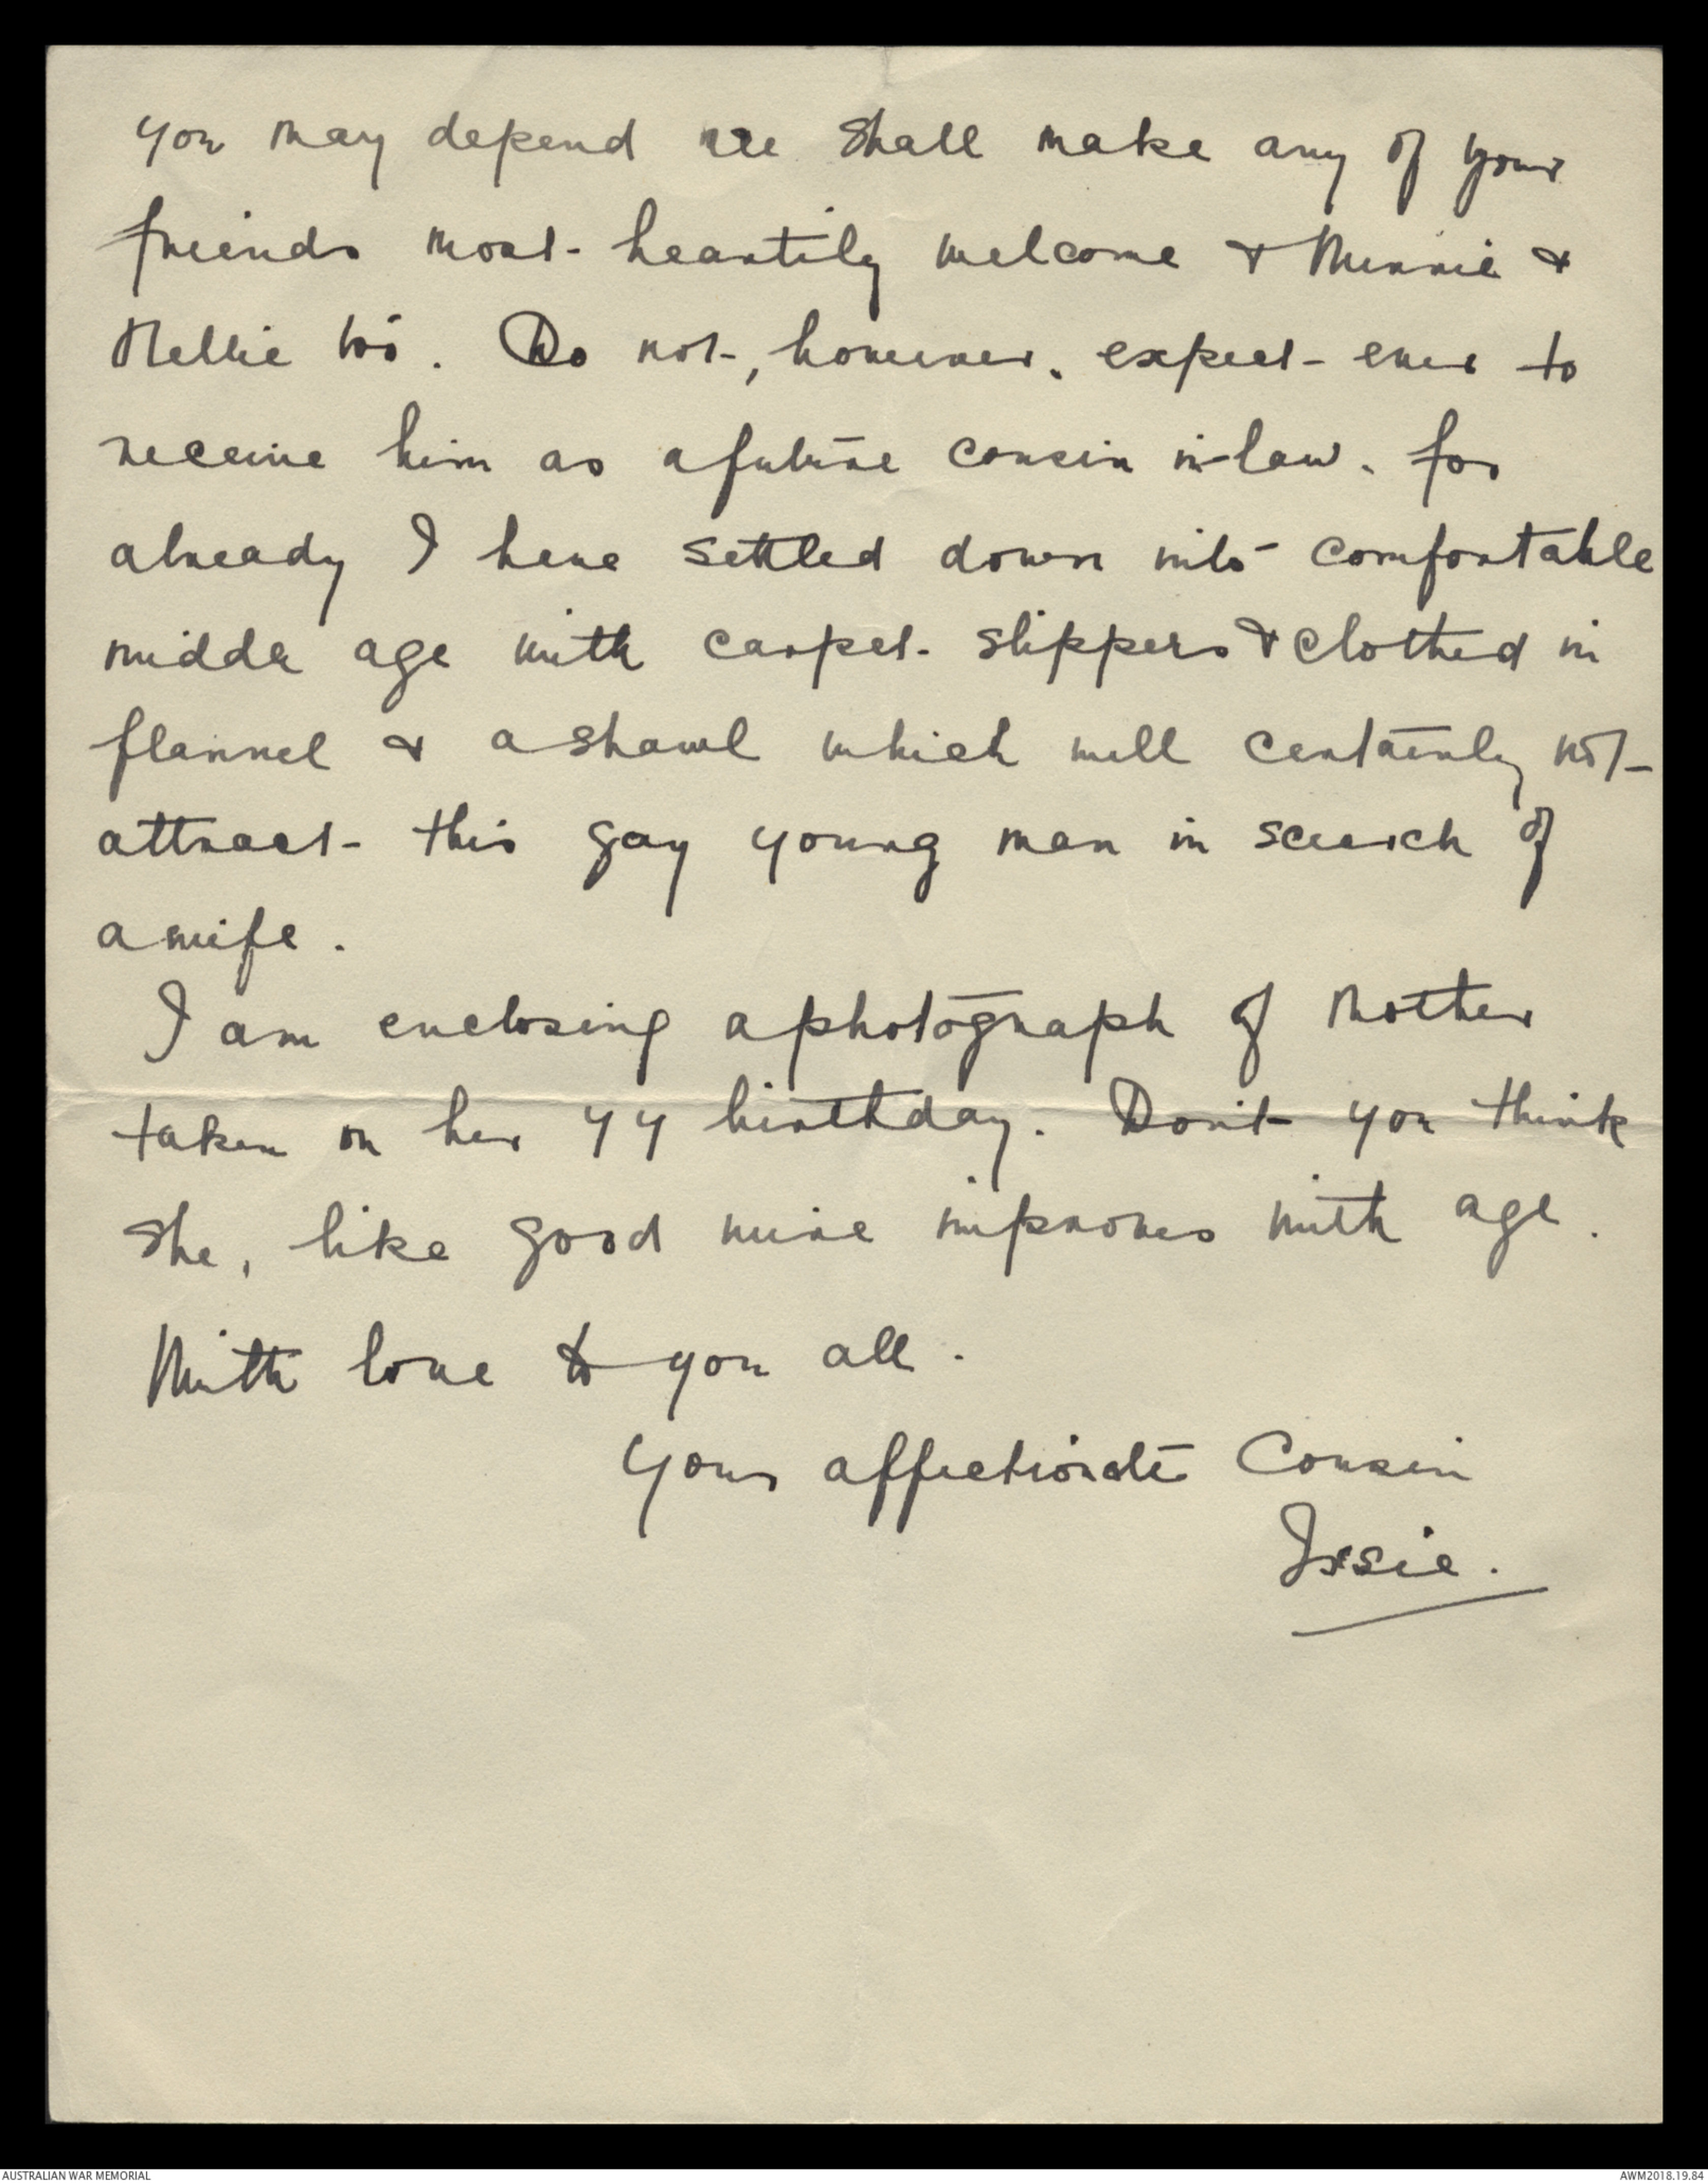 you may depend we shall make any of your
friends most heartily welcome & Minnie &
Nellie too. Do not, however, expect ever to
receive him as a future cousin in-law. for
already I have settled down into comfortable
middle age with carpet slippers & clothed in
flannel & a shawl which will certainly not
attract this gay young man in search of
a wife.
I am enclosing a photograph of Mother
taken on her 77 birthday. Don't you think
she, like good wine improves with age.
With love to you all.
Your affectionate Cousin
Issie.
AUSTRALIAN WAR MEMORIAL
AWM2018.19.84